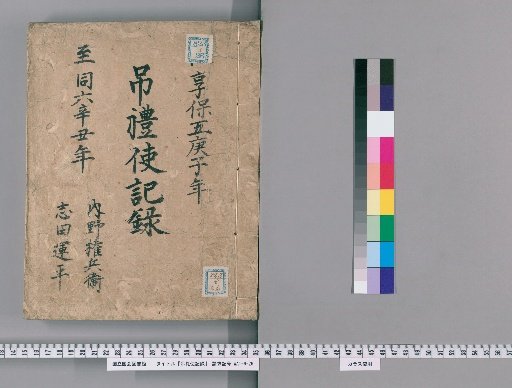 享保五庚子年
弔禮使記録
至同六辛丑年
内野權兵衛
志田運平